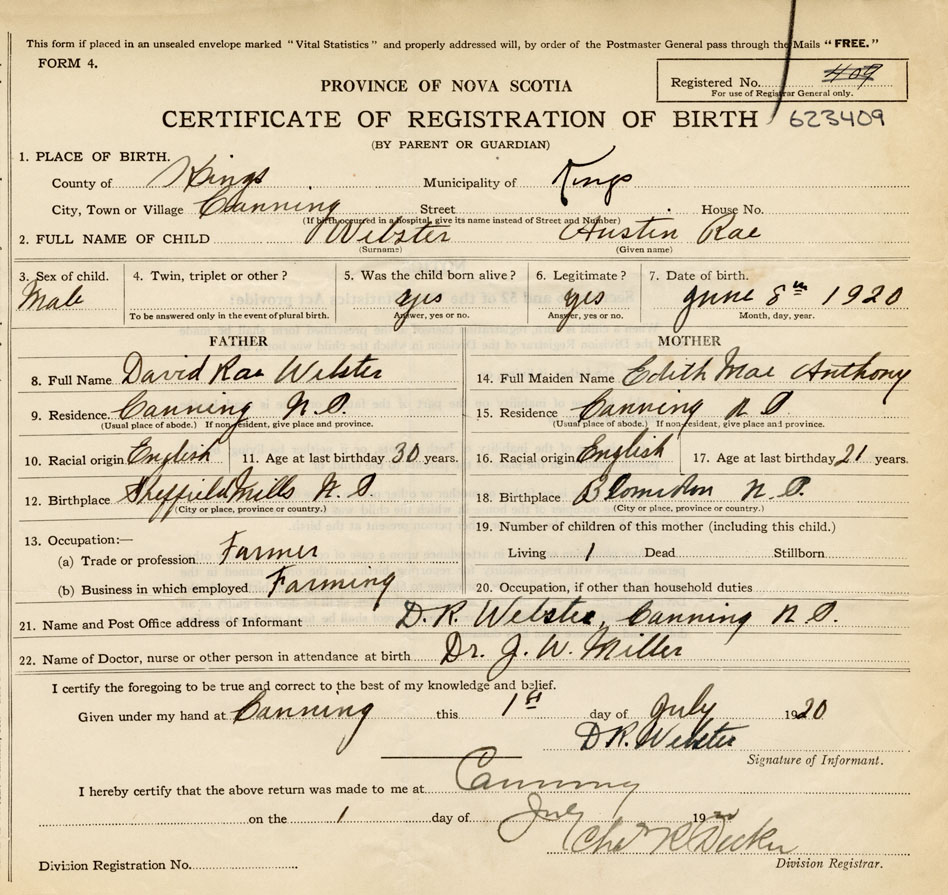 This form if placed in an unsealed envelope marked "Vital Statistics" and properly addressed will, by order of the Postmaster General pass through the Mails "FREE."
FORM 4.
Registered No. 409
For use of Registrar General only.
PROVINCE OF NOVA SCOTIA
CERTIFICATE OF REGISTRATION OF BIRTH 623409
(BY PARENT OR GUARDIAN)
1. PLACE OF BIRTH.
County of Kings Municipality of Kings
City, Town or Village Canning Street House No.
(If birth occurred in a hospital, give its name instead of Street and Number)
2. FULL NAME OF CHILD Webster Austin Rae
(Surname) (Given name)
3. Sex of child. 4. Twin, triplet or other? 5. Was the child born alive? 6. Legitimate? 7. Date of birth.
Male yes yes June 8th 1920
To be answered only in the event of plural birth. Answer, yes or no. Answer, yes or no. Month, day, year.
FATHER MOTHER
8. Full Name David Rae Webster 14. Full Maiden Name Edith Mae Anthony
9. Residence. Canning N.S. 15. Residence. Canning N S
(Usual place of abode.) If non-resident, give place and province. (Usual place of abode.) If non-resident, give place and province.
10. Racial origin English 11. Age at last birthday 30 years. 16. Racial origin English 17. Age at last birthday 21 years.
12. Birthplace Sheffield Mills N. S 18. Birthplace Blomidon N.S.
(City or place, province or country.) (City or place, province or country.)
19. Number of children of this mother (including this child.)
13. Occupation:—
(a) Trade or profession Farmer Living 1 Dead Stillborn
(b) Business in which employed Farming 20. Occupation, if other than household duties
21. Name and Post Office address of Informant D.R. Webster, Canning N S.
22. Name of Doctor, nurse or other person in attendance at birth Dr. J. W. Miller
I certify the foregoing to be true and correct to the best of my knowledge and belief.
Given under my hand at Canning this 1st day of July 1920
D R. Webster
Signature of Informant.
I hereby certify that the above return was made to me at Canning
on the 1 day of July 19
Division Registration No. Division Registrar.